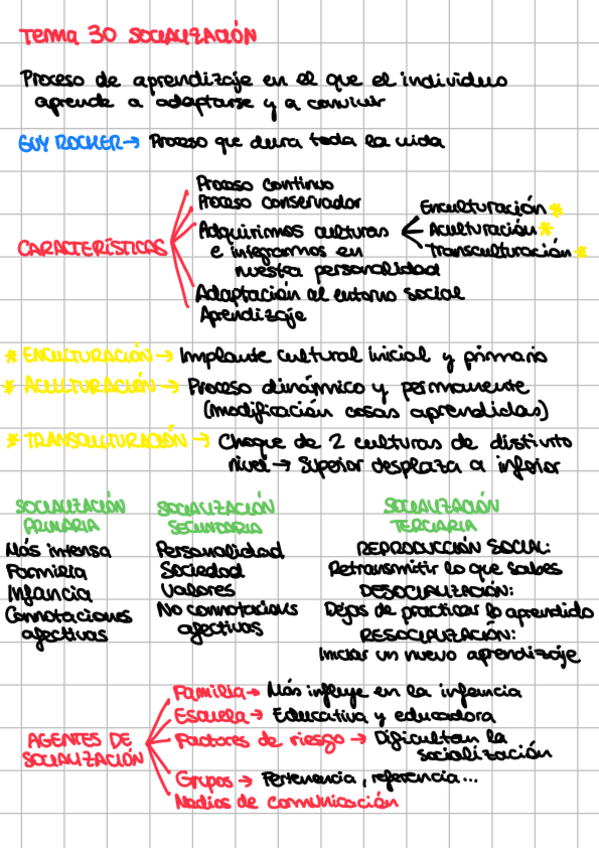 Tema 30 SOCIALIZACIÓN
Proceso de aprendizaje en el que el individuo
aprende a adaptarse y a convivir
GUY ROCHER → Proceso que dura toda la vida
Proceso continuo
Proceso conservador
Adquirimos culturas
e integrarnos en
nuestra personalidad
Enculturación *
Aculturación *
Transculturación *
CARACTERÍSTICAS
Adaptación al entorno social
Aprendizaje
* ENCULTURACIÓN → Implante cultural inicial y primario
* ACULTURACIÓN → Proceso dinámico y permanente
(modificación cosas aprendidas)
* TRANSCULTURACIÓN → Choque de 2 culturas de distinto
nivel → Superior desplaza a inferior
SOCIALIZACIÓN
PRIMARIA
Más intensa
Familia
Infancia
Connotaciones
afectivas
SOCIALIZACIÓN
SECUNDARIA
Personalidad
Sociedad
Valores
No connotaciones
afectivas
SOCIALIZACIÓN
TERCIARIA
REPRODUCCIÓN SOCIAL:
Retransmitir lo que sabes
DESOCIALIZACIÓN:
Dejas de practicar lo aprendido
RESOCIALIZACIÓN:
Iniciar un nuevo aprendizaje
AGENTES DE
SOCIALIZACIÓN
Familia → Más influye en la infancia
Escuela → Educativa y educadora
Factores de riesgo → Dificultan la
socialización
Grupos → Pertenencia, referencia...
Medios de comunicación